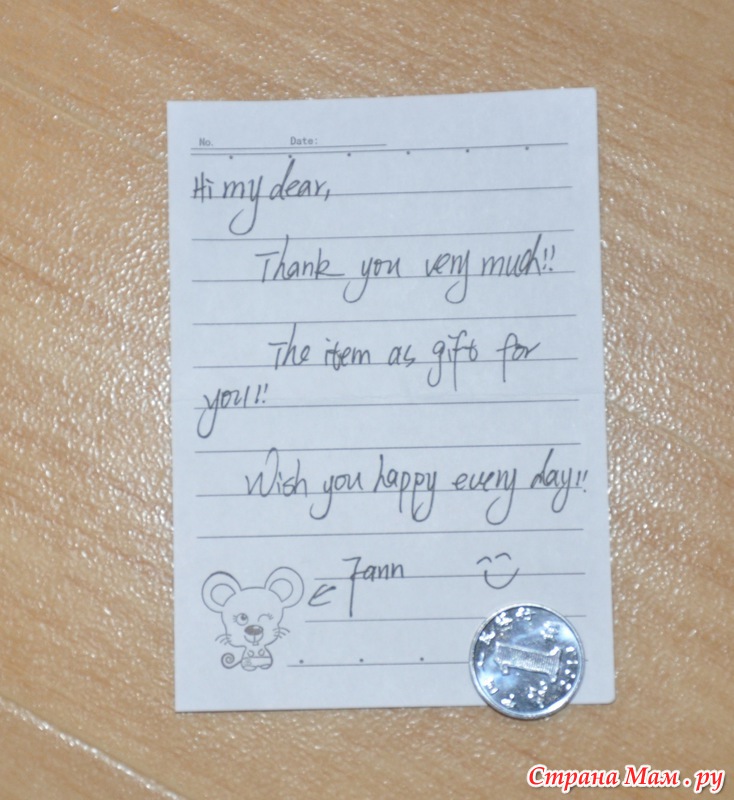 No. Date:
Hi my dear,
Thank you very much!!
The item as gift for
you!!
Wish you happy every day!!
Jann
1
Страна Мам.ру